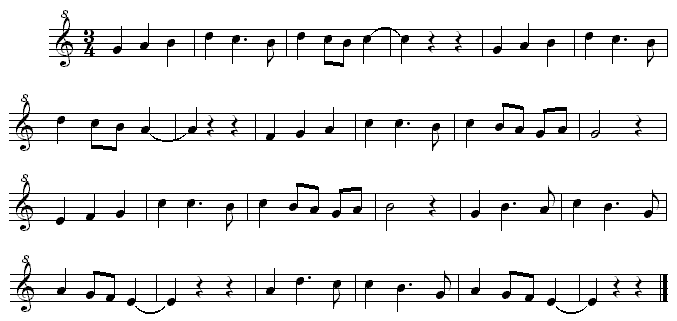 8
3
4
8
8
8